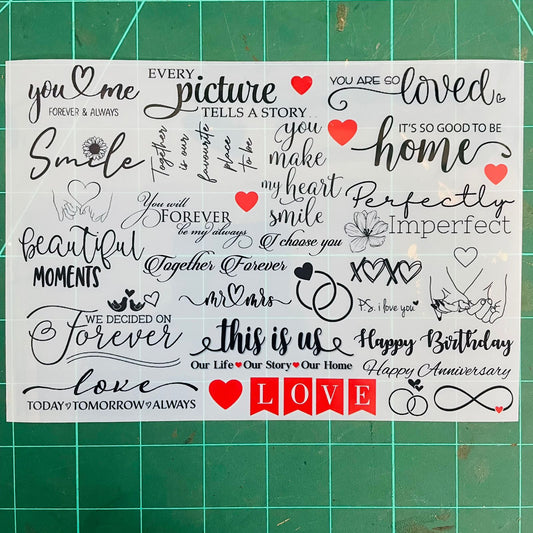 you me
FOREVER & ALWAYS
EVERY
picture
TELLS A STORY..
YOU ARE SO
loved
Smile
Together
is our
favourite
place
to be
you
make
my heart
smile
IT'S SO GOOD TO BE
home
You will
FOREVER
be my always
I choose you
Perfectly
Imperfect
beautiful
MOMENTS
Together Forever
mr mrs
XOXO
P.S. i love you
WE DECIDED ON
Forever
this is us
Our Life Our Story Our Home
Happy Birthday
Happy Anniversary
love
TODAY TOMORROW ALWAYS
LOVE